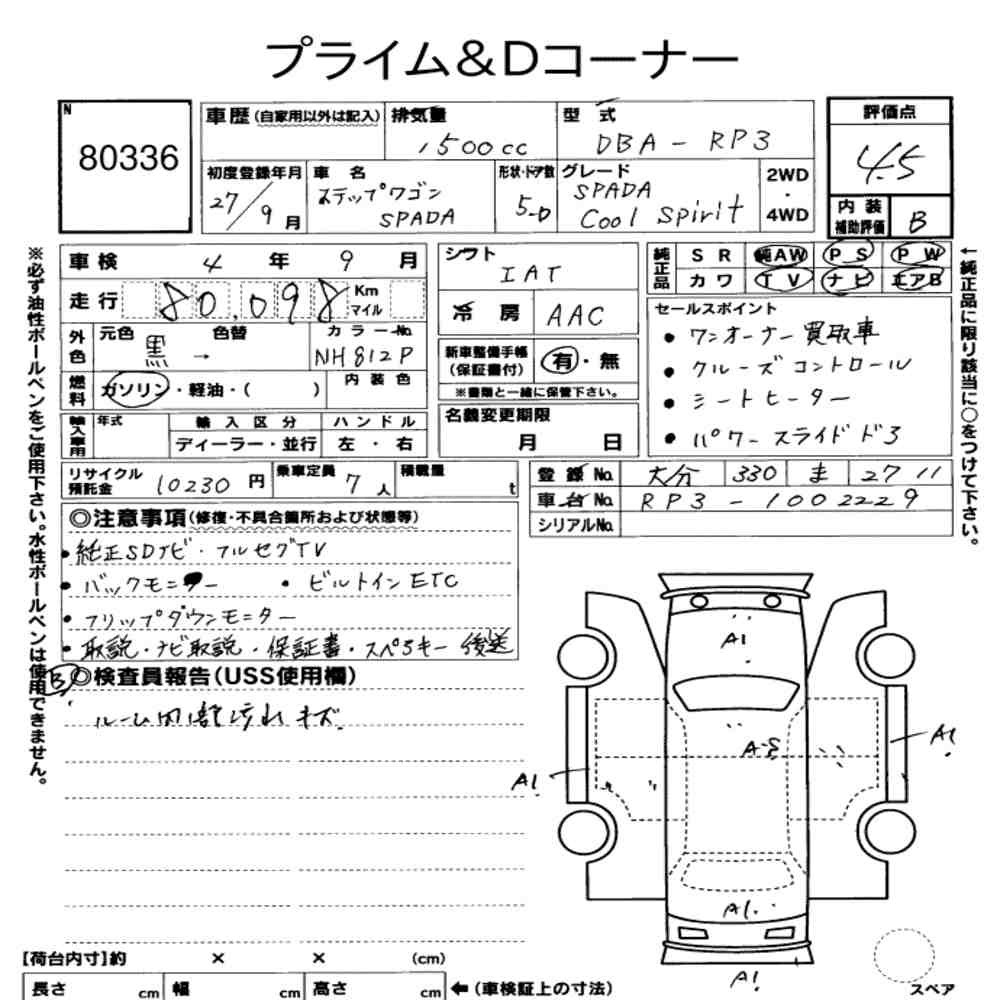 プライム&Dコーナー
N
80336
車歴 (自家用以外は記入)
排気量 1500cc
型式 DBA-RP3
評価点
4.5
初度登録年月 27/9月
車名 ステップワゴン SPADA
形状・ドア数 5-D
グレード SPADA Cool Spirit
2WD・4WD
内装補助評価 B
車検 4年9月
走行 80.098 Km マイル
外色 元色 黒 → 色替 カラーNo. NH812P
燃料 ガソリン・軽油・( ) 内装色
輸入車用 年式 輸入区分 ディーラー・並行 ハンドル 左・右
リサイクル預託金 10230円
乗車定員 7人
積載量 t
シフト IAT
冷房 AAC
新車整備手帳(保証書付) 有・無
※書類と一緒に保管下さい。
名義変更期限 月 日
純正品 SR 純AW PS PW
カワ TV ナビ エアB
セールスポイント
• ワンオーナー買取車
• クルーズコントロール
• シートヒーター
• パワースライドドア
登録No. 大分 330 ま 2711
車台No. RP3-1002229
シリアルNo.
◎注意事項(修復・不具合箇所および状態等)
• 純正SDナビ・フルセグTV
• バックモニター • ビルトインETC
• フリップダウンモニター
• 取説・ナビ取説・保証書・スペアキー後送
B ◎検査員報告(USS使用欄)
ルーム内部汚れキズ
※必ず油性ボールペンをご使用下さい。水性ボールペンは使用できません。
←純正品に限り該当に○をつけて下さい。
A1
A-S
A1
A1
A1
A1
スペア
【荷台内寸】約 × × (cm)
長さ cm 幅 cm 高さ cm ←(車検証上の寸法)